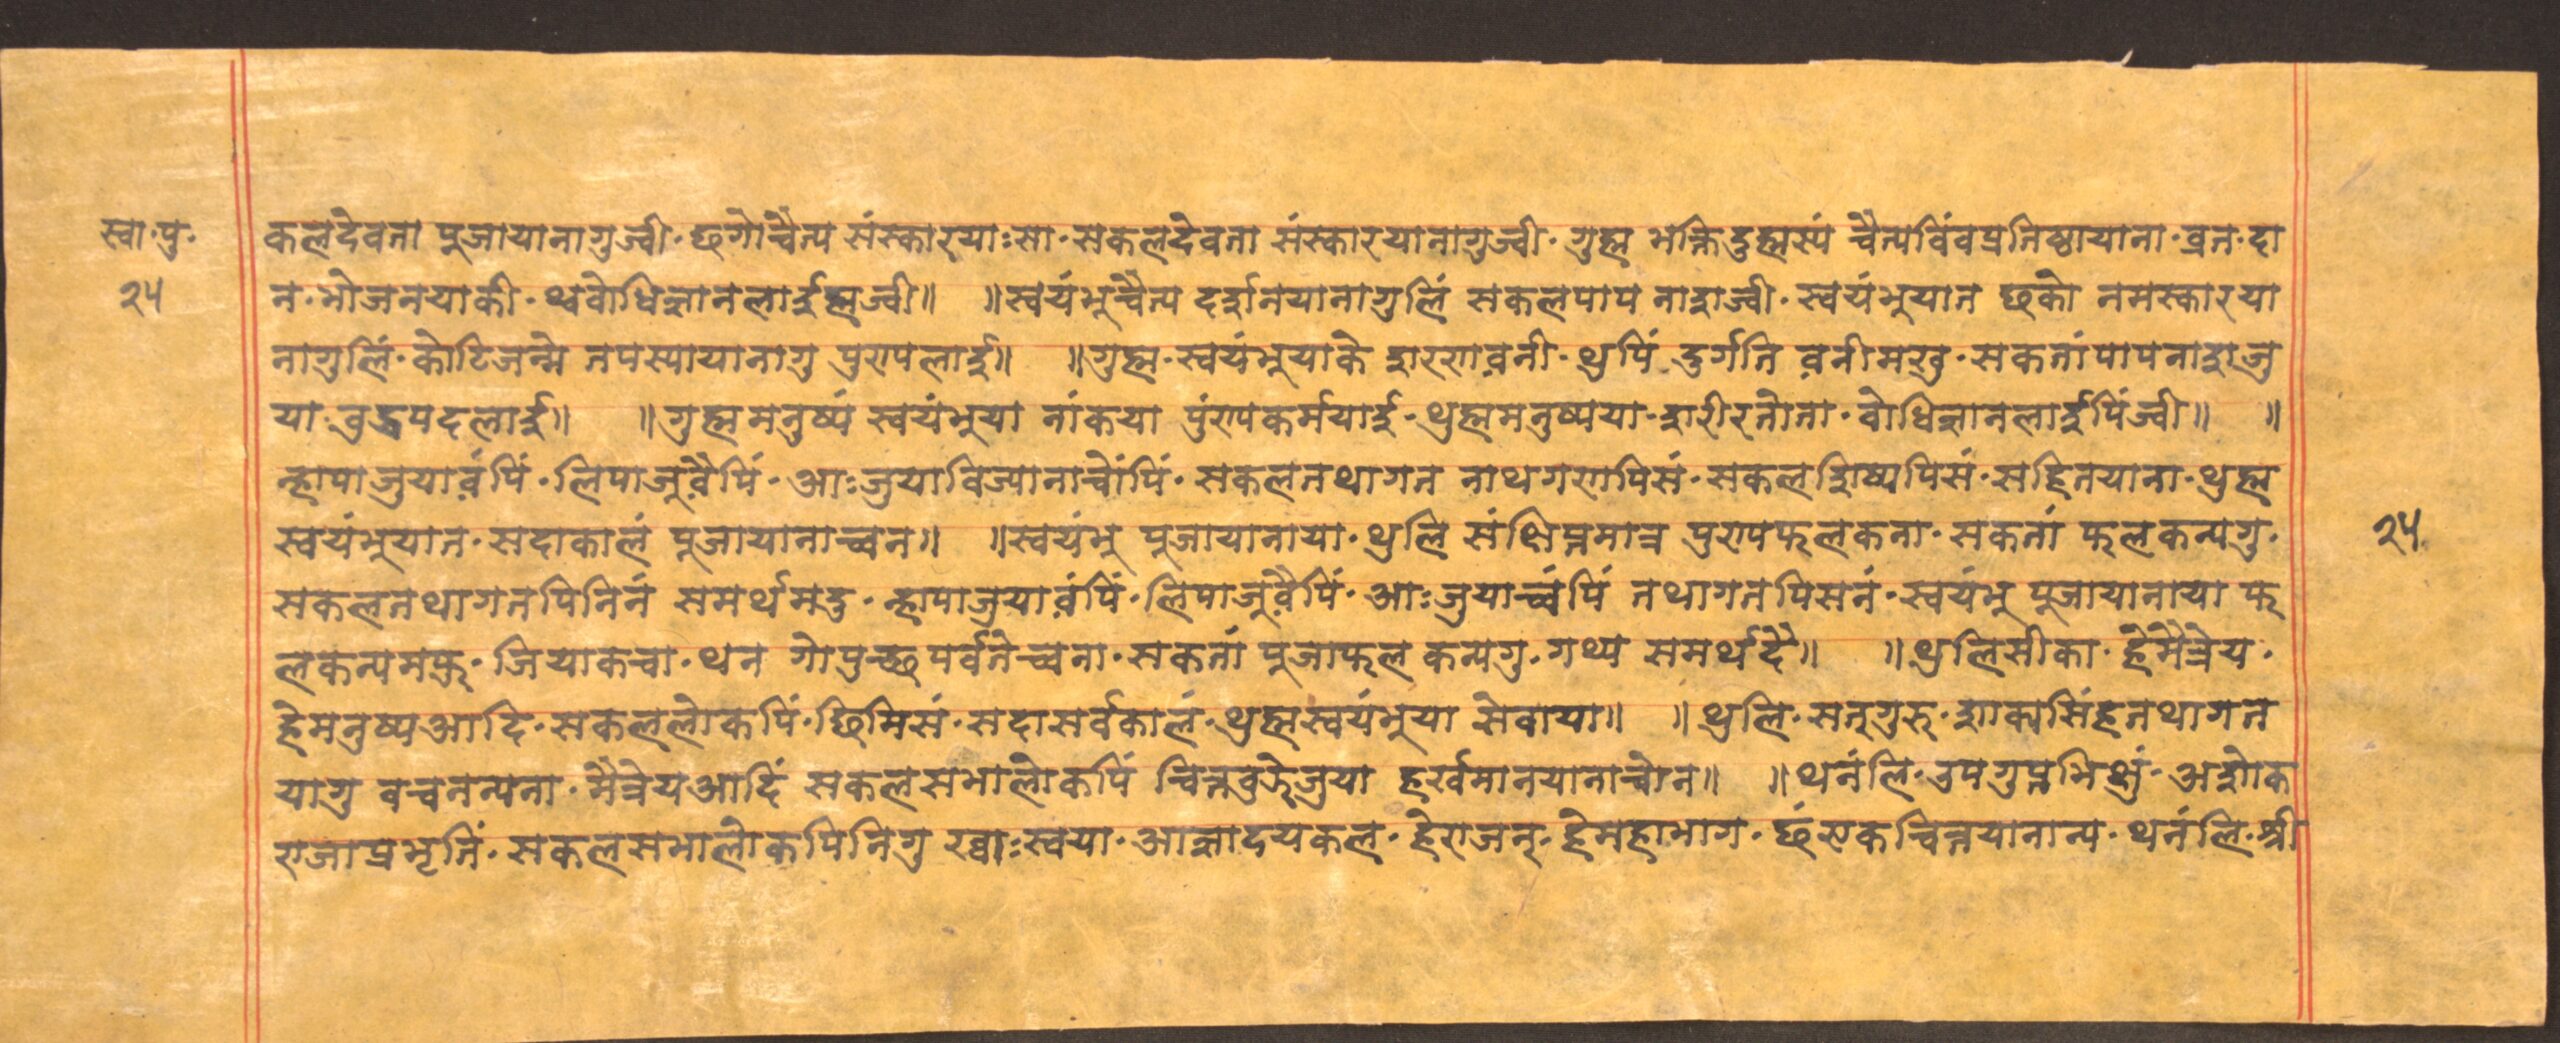 स्वा·पु·
२५
कलदेवता पूजायानागुज्वी·छगोचैत्य संस्कारयाःसा·सकलदेवता संस्कारयानागुज्वी·गुह्म भक्तिदुह्मस्यं चैत्यविंवप्रतिष्ठायाना·व्रत·दा
न·भोजनयाकी·थ्ववोधिज्ञानलाईह्मज्वी॥ ॥स्वयंभूचैत्य दर्शनयानागुलिं सकलपाप नाशज्वी·स्वयंभुयात छको नमस्कारया
नागुलिं·कोटिजन्मे तपस्यायानागु पुण्यलाई॥ ॥गुह्म·स्वयंभुयाके शरणवनी·थुपिं दुर्गति वनीमखु·सकतांपापनाशजु
या·वुद्धपदलाई॥ ॥गुह्ममनुष्यं स्वयंभुया नांकया पुंण्यकर्मयाई·थुह्ममनुष्यया·शरीरतोता·वोधिज्ञानलाईपिंज्वी॥ ॥
न्हापाजुयावंपिं·लिपाजूवैपिं·आःजुयाविज्यानाचोंपिं·सकलतथागत नाथगणपिसं·सकलशिष्यपिसं·सहितयाना·थुह्म
स्वयंभुयात·सदाकालं पूजायानाच्वन॥ ॥स्वयंभु पूजायानाया·थुलि संक्षिप्तमात्र पुण्यफलकना·सकतां फलकन्यगु·
सकलतथागतपिनिनं समर्थमदु·न्हापाजुयावंपिं·लिपाजूवैपिं·आःजुयाच्वंपिं तथागतपिसनं·स्वयंभु पूजायानाया फ
लकन्यमफु·जियाकचा·थन गोपुच्छपर्वतेच्वना·सकतां पूजाफल कन्यगु·गथ्य समर्थदै॥ ॥थुलिसीका·हेमैत्रेय·
हेमनुष्यआदि·सकललोकपिं·छिमिसं·सदासर्वकालं·थुह्मस्वयंभुया सेवाया॥ ॥थुलि·सतुगुरु·शाक्यसिंहतथागत
यागु वचनन्यना·मैत्रेयआदिं सकलसभालोकपिं चित्तवुझेजुया हर्खमानयानाचोन॥ ॥थनंलि·उपगुप्तभिक्षुं·अशोक
राजाप्रभृतिं·सकलसभालोकपिनिगु ख्वाःस्वया·आज्ञादयकल·हेराजन्·हेमहाभाग·छंएकचित्तयानान्य·थनंलि·श्री
२५